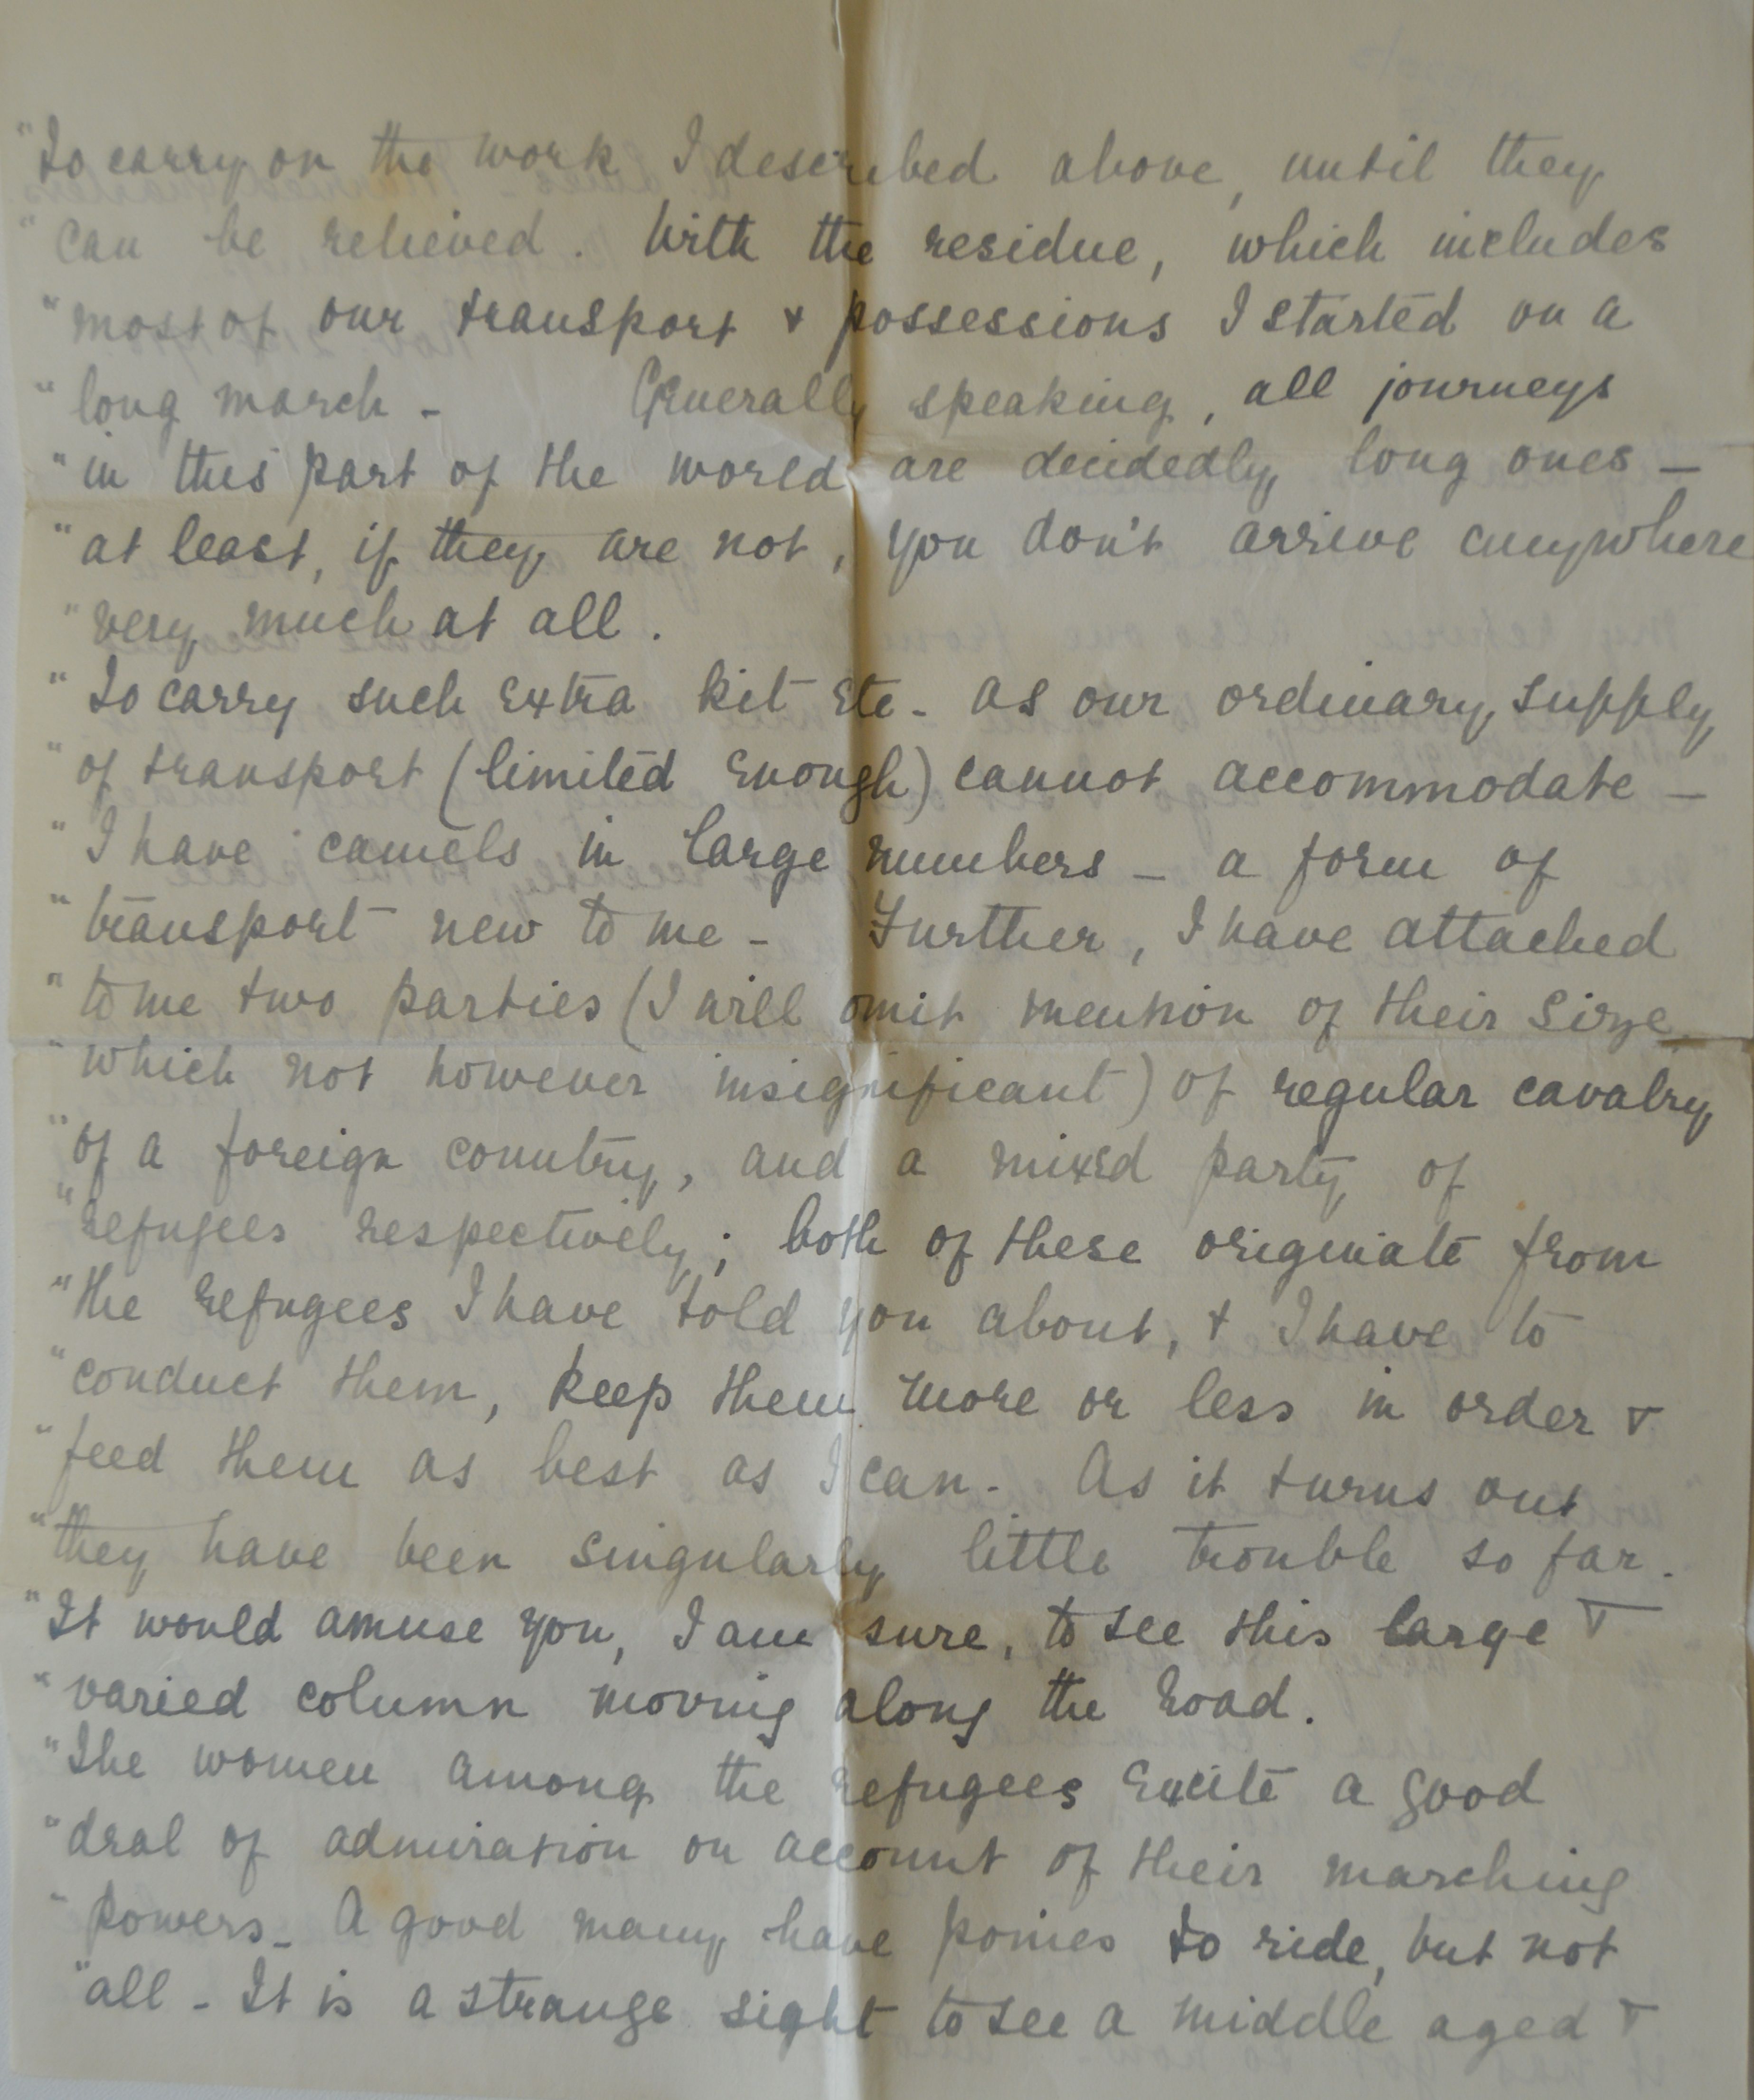 "To carry on the work I described above, until they
"can be relieved. With the residue, which includes
"most of our transport & possessions I started on a
"long march - Generally speaking, all journeys
"in this part of the world are decidedly long ones -
"at least, if they are not, you don't arrive anywhere
"very much at all.
"To carry such extra kit etc. as our ordinary supply
"of transport (limited enough) cannot accommodate -
"I have camels in large numbers - a form of
"transport new to me - Further, I have attached
"to me two parties (I will omit mention of their size
"which not however insignificant) of regular cavalry
"of a foreign country, and a mixed party of
"refugees respectively; both of these originate from
"the refugees I have told you about, & I have to
"conduct them, keep them more or less in order &
"feed them as best as I can. As it turns out
"they have been singularly little trouble so far.
"It would amuse you, I am sure, to see this large &
"varied column moving along the road.
"The women among the refugees excite a good
"deal of admiration on account of their marching
"powers - A good many have ponies to ride, but not
"all - It is a strange sight to see a middle aged &